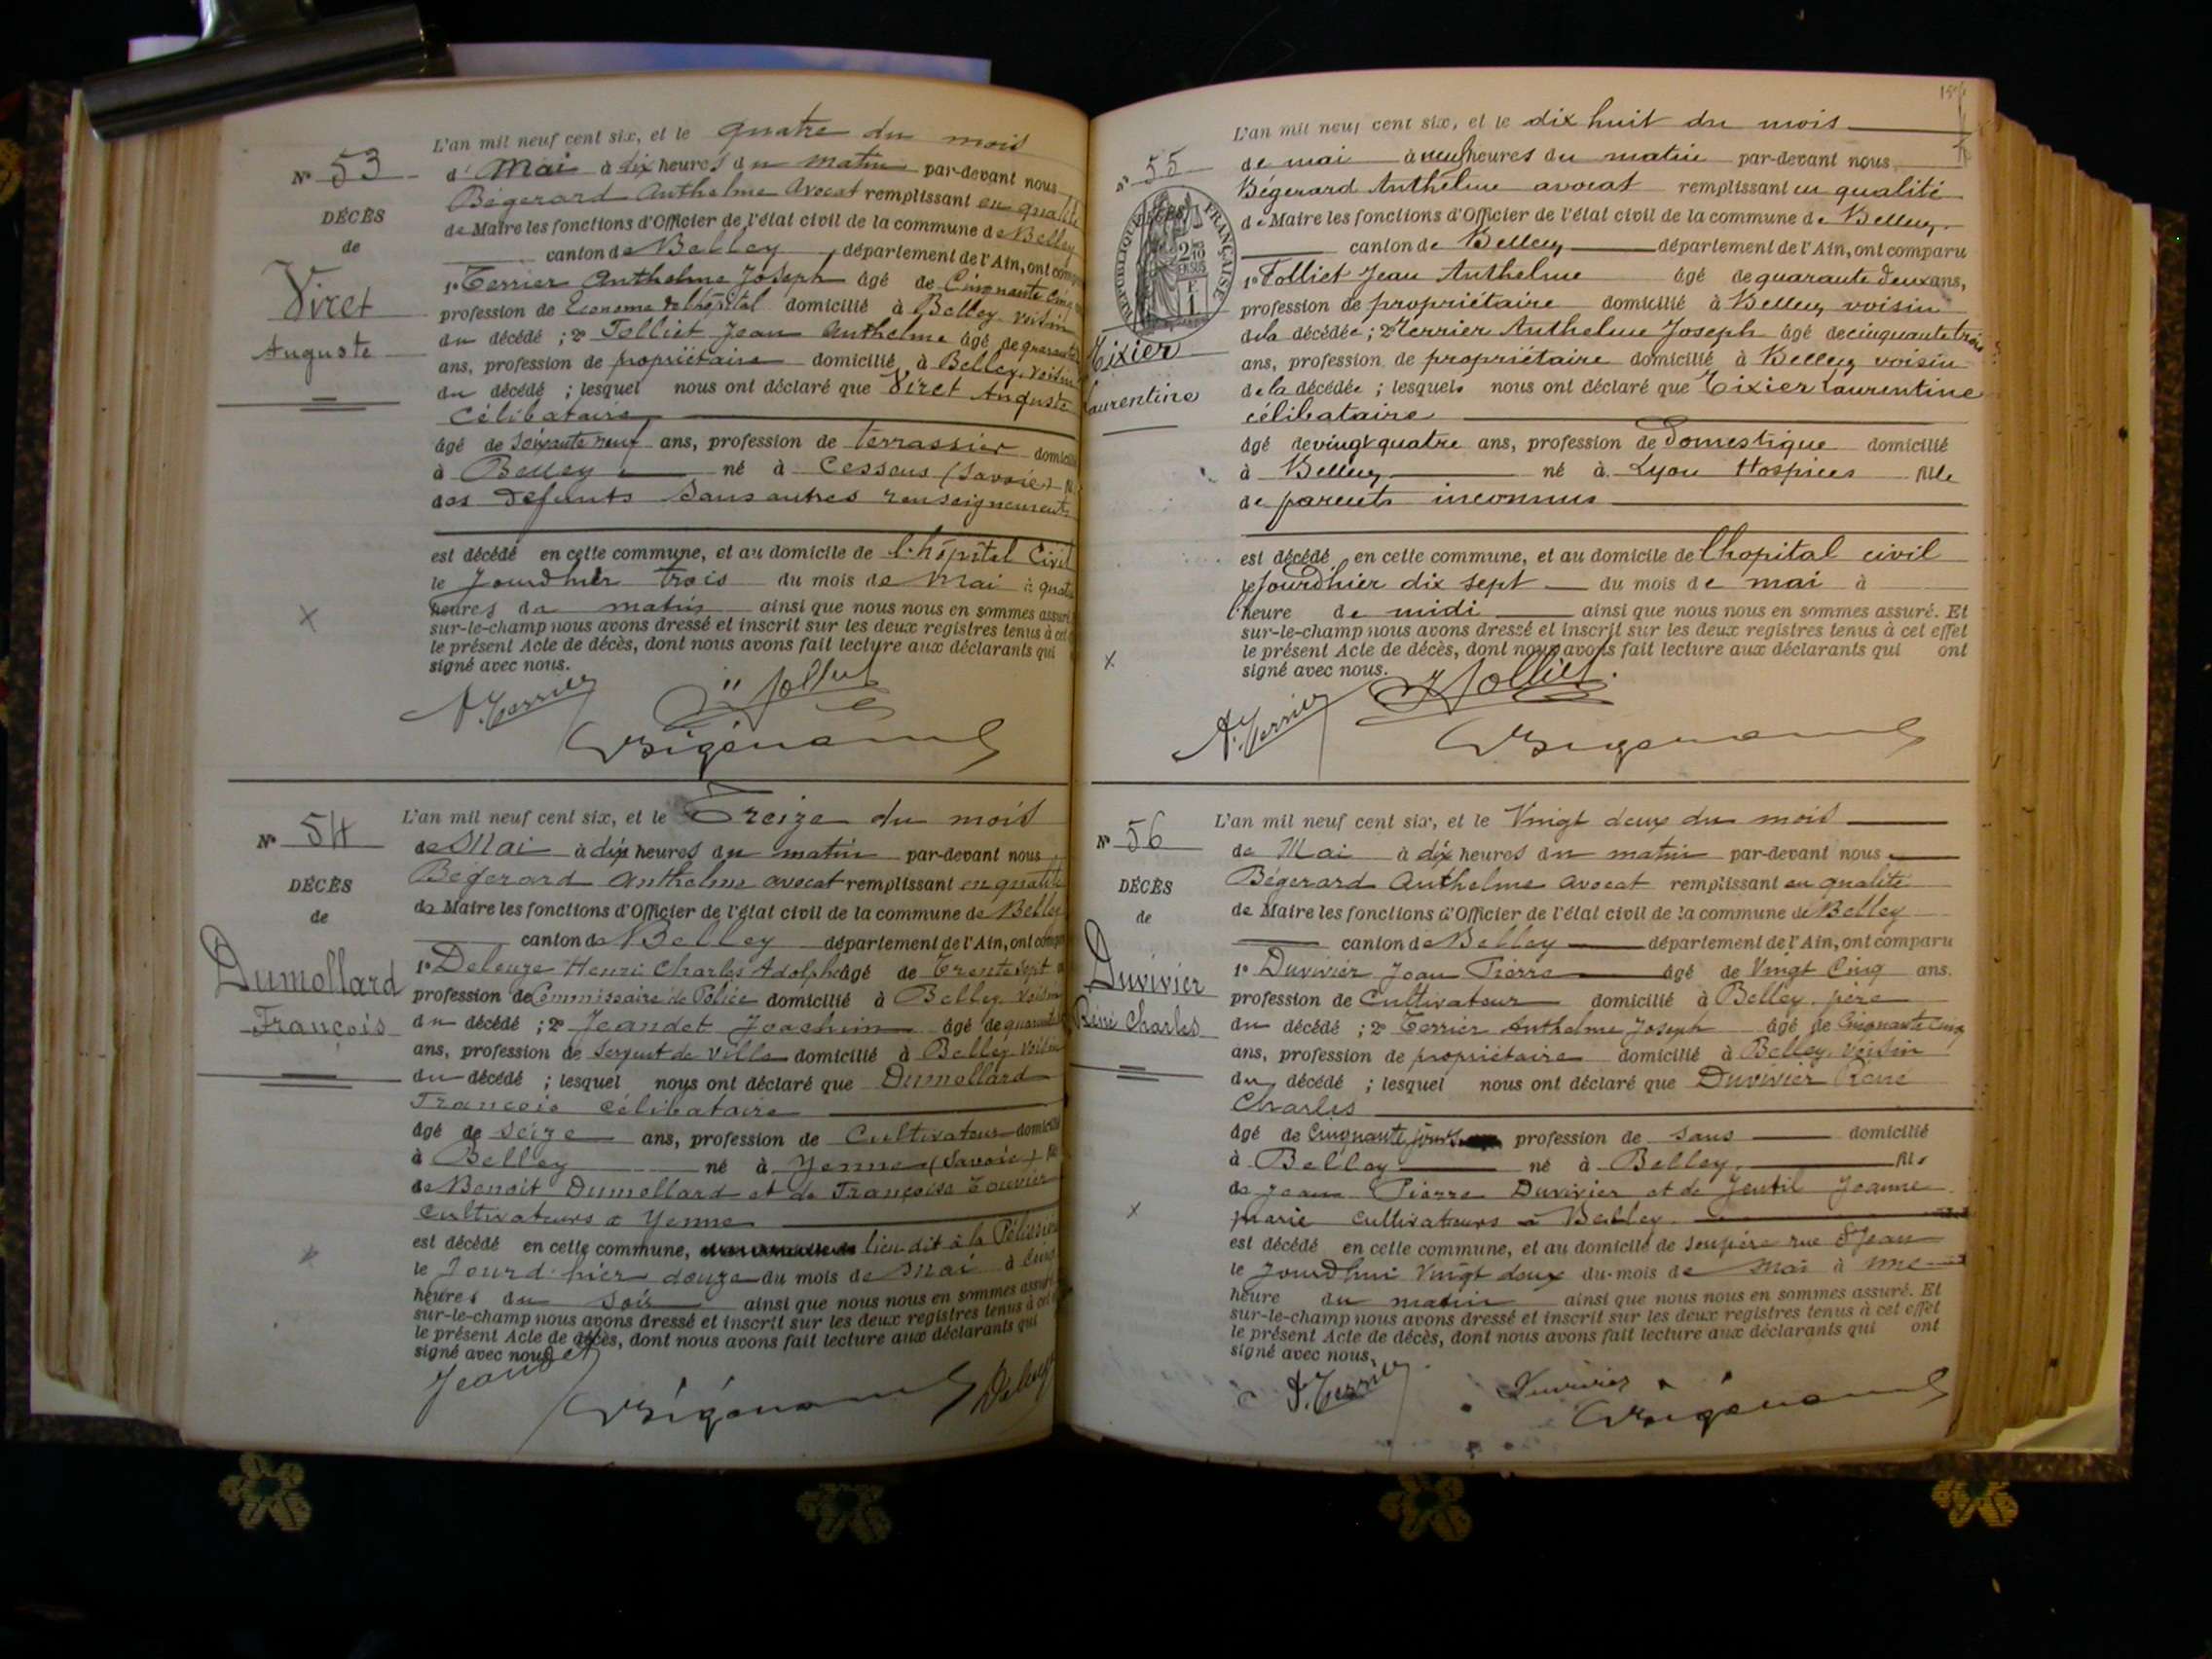 L'an mil neuf cent six, et le quatre du mois
N° 53
d' Mai à dix heures du matin par-devant nous
Bégerard Anthelme Avocat remplissant en qualité
DÉCÈS
de Maire les fonctions d'Officier de l'état civil de la commune de Belley
de
canton de Belley département de l'Ain, ont
1° Terrier Anthelme Joseph âgé de Cinquante Cinq
Viret
profession de Econome de l'hôpital domicilié à Belley voisin
du décédé ; 2° Tolliet Jean Anthelme âgé de quarante
Auguste
ans, profession de propriétaire domicilié à Belley, voisin
du décédé ; lesquel nous ont déclaré que Viret Auguste
Célibataire
âgé de soixante neuf ans, profession de terrassier
à Belley né à Cessens (Savoie)
des defunts sans autres renseignements
est décédé en cette commune, et au domicile de l'hôpital Civil
le Jourd'hier trois du mois de Mai à
heures du matin ainsi que nous nous en sommes assuré
sur-le-champ nous avons dressé et inscrit sur les deux registres tenus à cet
le présent Acte de décès, dont nous avons fait lecture aux déclarants qui
signé avec nous.
A. Terrier Tolliet
Bégerard
L'an mil neuf cent six, et le Treize du mois
N° 54
de Mai à dix heures du matin par-devant nous
Bégerard Anthelme avocat remplissant en qualité
DÉCÈS
de Maire les fonctions d'Officier de l'état civil de la commune de Belley
de
canton de Belley département de l'Ain, ont
1° Deleuze Henri Charles Adolphe âgé de Trente sept
Dumollard
profession de Commissaire de Police domicilié à Belley voisin
François
du décédé ; 2° Jeandet Joachim âgé de
ans, profession de Sergent de Ville domicilié à Belley voisin
du décédé ; lesquel nous ont déclaré que Dumollard
François célibataire
âgé de seize ans, profession de Cultivateur
à Belley né à Yenne (Savoie)
de Benoit Dumollard et de Françoise Touvier
Cultivateurs à Yenne
est décédé en cette commune, lieu dit à la
le Jourd'hier douze du mois de Mai à
heures du soir ainsi que nous nous en sommes
sur-le-champ nous avons dressé et inscrit sur les deux registres tenus à cet
le présent Acte de décès, dont nous avons fait lecture aux déclarants qui
signé avec nous.
Jeandet Bégerard Deleuze
L'an mil neuf cent six, et le dix huit du mois
N° 55
de mai à neuf heures du matin par-devant nous
Bégerard Anthelme avocat remplissant en qualité
DÉCÈS
RÉPUBLIQUE FRANÇAISE
de Maire les fonctions d'Officier de l'état civil de la commune de Belley
canton de Belley département de l'Ain, ont comparu
1° Tolliet Jean Anthelme âgé de quarante deux ans,
profession de propriétaire domicilié à Belley voisin
de la décédée ; 2° Terrier Anthelme Joseph âgé de cinquante trois
Tixier
ans, profession de propriétaire domicilié à Belley voisin
Laurentine
de la décédée ; lesquels nous ont déclaré que Tixier Laurentine
célibataire
âgé de vingt quatre ans, profession de Domestique domicilié
à Belley né à Lyon Hospices fille
de parents inconnus
est décédé en cette commune, et au domicile de l'hopital civil
le Jourd'hier dix sept du mois de mai à
l'heure de midi ainsi que nous nous en sommes assuré. Et
sur-le-champ nous avons dressé et inscrit sur les deux registres tenus à cet effet
le présent Acte de décès, dont nous avons fait lecture aux déclarants qui ont
signé avec nous.
A. Terrier Tolliet
Bégerard
L'an mil neuf cent six, et le Vingt deux du mois
N° 56
de Mai à dix heures du matin par-devant nous
Bégerard Anthelme Avocat remplissant en qualité
DÉCÈS
de Maire les fonctions d'Officier de l'état civil de la commune de Belley
de
canton de Belley département de l'Ain, ont comparu
1° Duvivier Jean Pierre âgé de Vingt Cinq ans.
Duvivier
profession de Cultivateur domicilié à Belley, père
René Charles
du décédé ; 2° Terrier Anthelme Joseph âgé de Cinquante Cinq
ans, profession de propriétaire domicilié à Belley, voisin
du décédé ; lesquel nous ont déclaré que Duvivier René
Charles
âgé de Cinquante jours profession de sans domicilié
à Belley né à Belley, fils
de Jean Pierre Duvivier et de Jentil Jeanne
marie cultivateurs à Belley
est décédé en cette commune, et au domicile de son père rue St Jean
le Jourd'hui Vingt deux du mois de Mai à une
heure du matin ainsi que nous nous en sommes assuré. Et
sur-le-champ nous avons dressé et inscrit sur les deux registres tenus à cet effet
le présent Acte de décès, dont nous avons fait lecture aux déclarants qui ont
signé avec nous.
A. Terrier Duvivier
Bégerard